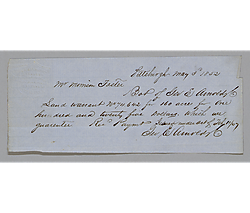 Pittsburgh May 8 1852
Mr William Foster
Bot of Jno. E. Arnold & Co
Land warrant No 74602 for 160 acres for One
hundred and twenty five Dollars which we
guarantee Rec Payment
Jno. E. Arnold & Co